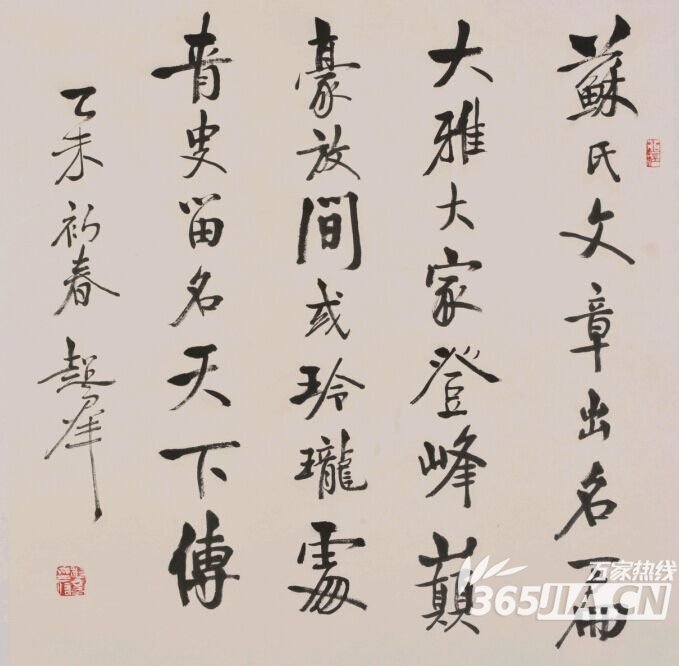 蘇氏文章出名篇
大雅大家登峰巔
豪放間或玲瓏處
青史留名天下傳
乙未初春 超群
万家热线
365JIA.CN